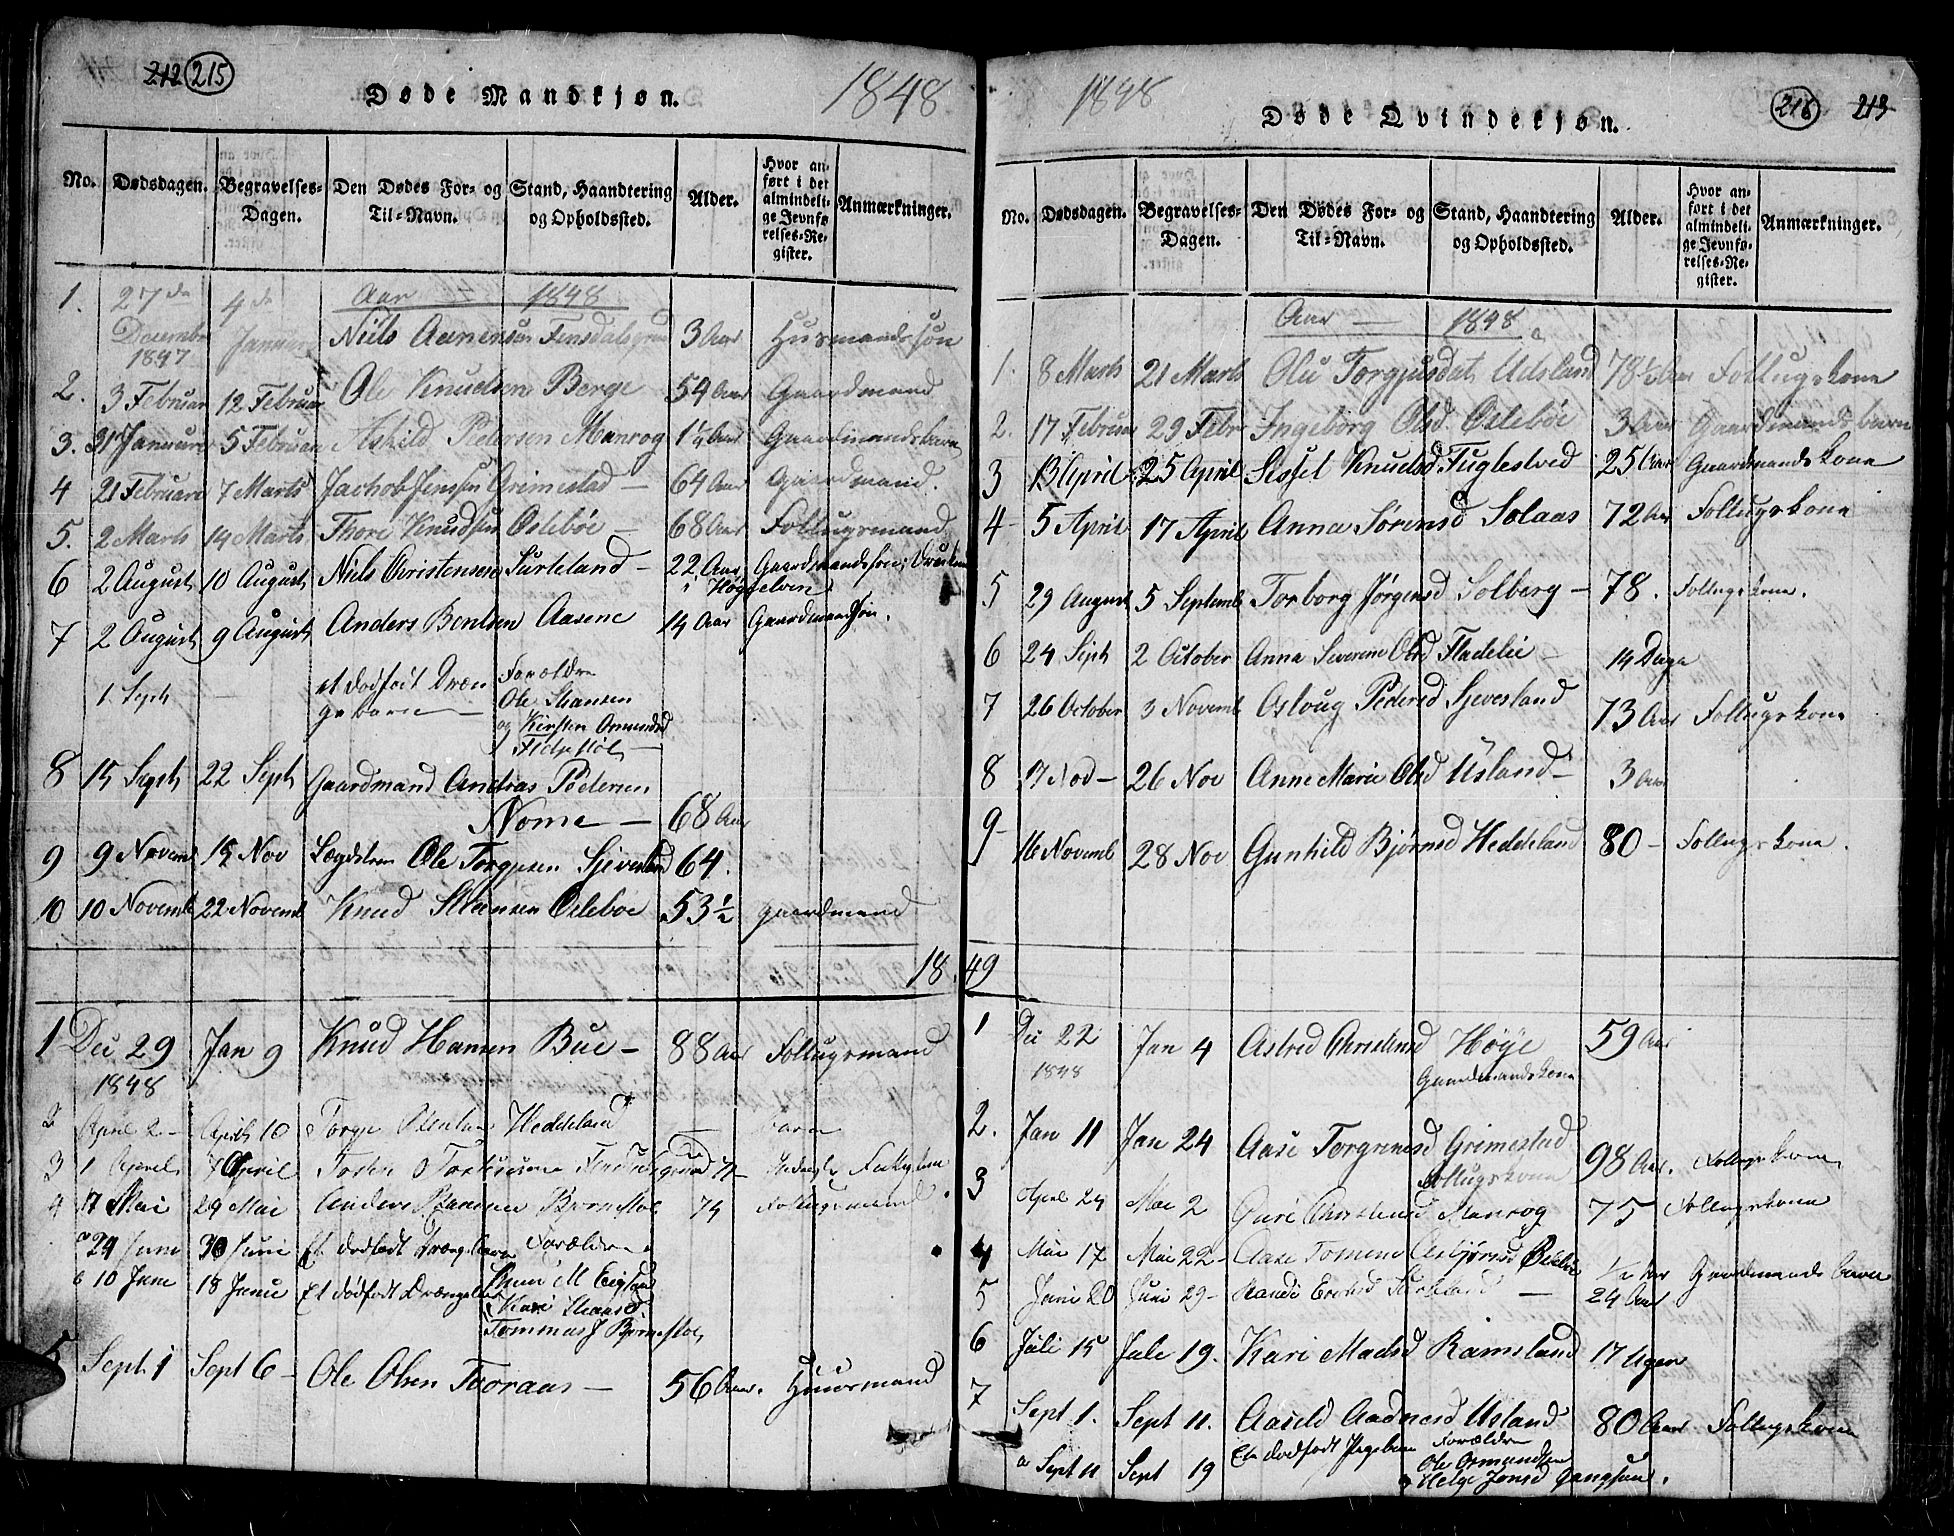 212 215
Døde Mandkjøn.
1848
No. Dødsdagen. Begravelses-Dagen. Den Dødes For- og Til-Navn. Stand, Haandtering og Opholdssted. Alder. Hvor anført i det almindelige Jevnførelses-Register. Anmærkninger.
Aar 1848
1. 27de December 1847 4de Januar Niels Aanensen Fensdalsgrun 3 Aar Husmandssøn
2. 3 Februar 12 Februar Ole Knudsen Berge 54 Aar Gaardmand
3. 31 Januar 5 Februar Askild Pedersen Manrog 1¼ Aar Gaardmandsbarn
4 21 Februar 7 Marts Jachob Jensen Grimestad 64 Aar Gaardmand.
5. 2 Marts 14 Marts Thore Knudsen Oslebøe 68 Aar Follugsmand
6 2 August 10 August Niels Christensen Surteland 22 Aar Gaardmandssøn; Druknet
i Høgselven
7 2 August 9 August Anders Bentsen Aasene 14 Aar Gaardmandsøn.
1 Sept — et dødfødt Dren
gebarn
Forældre
Ole Hansen
og Kirsten Osmundsd
8 15 Sept 22 Sept Gaardmand Andreas Pedersen
Nome — 68 Aar
9 9 Novemb 15 Nov Lægdslem Ole Torgjusen Sjevesland 64.
10 10 Novemb 22 Novemb Knud Oslebøe 53½ gaardmand
1849
1 Dec 29 1848 Jan 9 Knud Hansen Bue — 88 Aar Follugsmand
2 April 2 — April 10 Torge Heddeland
3 1 April 7 April
4 17 Mai 29 Mai Anders Bjørnestøl 74 Follugsmand.
a 24 Juni 30 Juni Et dødfødt Drængebarn Forældre
b 10 June 18 June Et dødfødt Drængebarn
Kari
Tommas J Bjørnestøl
5 Sept 1 Sept 6 — Ole Olsen Tooraas — 56 Aar. Huusmand
1848
Døde Qvindekjøn.
216 213
No. Dødsdagen. Begravelses-Dagen. Den Dødes For- og Til-Navn. Stand, Haandtering og Opholdssted. Alder. Hvor anført i det almindelige Jevnførelses-Register. Anmærkninger.
Aar — 1848
1. 8 Marts 21 Marts Olu Torgjusdat Udsland 78½ Aar Follugskone
2. 17 Februar 29 Febr Ingeborg Olsd. Oslebøe 3 Aar Gaardmandsbarn
3 13 April 25 April Sissel Knudsd Fuglestved 25 Aar Gaardmandskone
4 5 April 17 April Anna Sørensd Solaas 72 Aar Follugskone
5 29 August 5 Septemb Torborg Jørgensd Solberg — 78. Follugskone.
6 24 Sept 2 October Anna Severine Olsd Fladelie — 14 Dage
7 26 October 3 Novemb Osloug Pedersd Sjevesland 73 Aar Follugskone
8 17 Nov — 26 Nov Anne Marie Olsd Usland — 3 Aar
9 16 Novemb 28 Nov Gunhild Bjørnsd Heddeland 80 — Follugskone.
1 Dec 22 1848 Jan 4 Astred Christensd Høije 59 Aar
Gaardmandskone
2. Jan 11 Jan 24 Aase Torgrimsd Grimestad 98 Aar. Follugskone
Follugskone
3 April 24 Mai 2 Guri Christensd Manrog 75 Follugskone
4 Mai 17 Mai 22 — Aase Tomine Asbjørnsd Oslebøe ½ Aar Gaardmandsbarn
5 Juni 20 Juni 29 — Randi Evensd — 24 Aar
6 Juli 15 Jule 19. Kari Madsd Ramsland 17 Uger
7 Sept 1. Sept 11. Aasild Aadnesd Usland 80 Aar Follugskone
a Sept 11 Sept 19 Et dødfødt Pigebarn Forældre
Ole Osmundsen
Helge Jensd